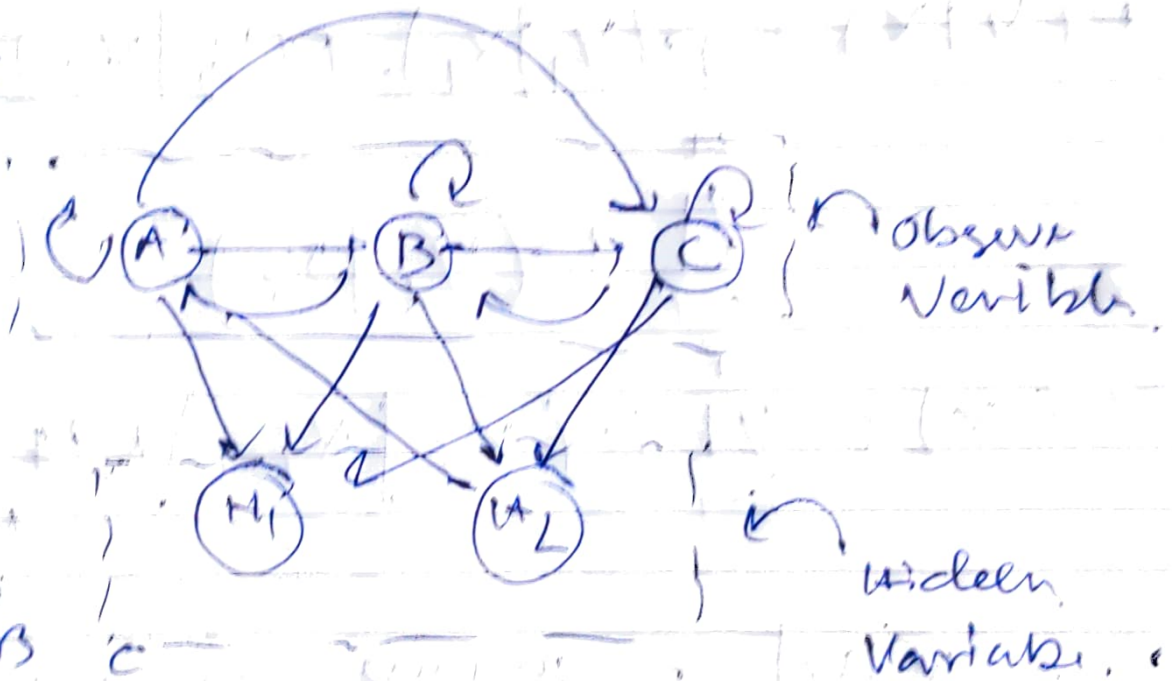 A B C
Observe
Varible
H1 H2
Hideen
Variable.
B C